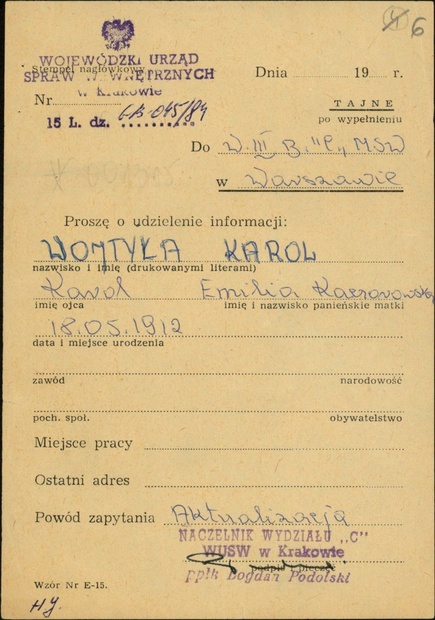 6
WOJEWÓDZKI URZĄD
Stempel nagłówkowy
SPRAW WEWNĘTRZNYCH
w Krakowie
Dnia 19 r.
Nr
15 L. dz. GB-045/84
TAJNE
po wypełnieniu
Do W. III B. "C" MSW
w Warszawie
Proszę o udzielenie informacji:
WOJTYŁA KAROL
nazwisko i imię (drukowanymi literami)
Karol Emilia Kaczorowska
imię ojca imię i nazwisko panieńskie matki
18.05.1912
data i miejsce urodzenia
zawód narodowość
poch. społ. obywatelstwo
Miejsce pracy
Ostatni adres
Powód zapytania Aktualizacja
NACZELNIK WYDZIAŁU „C"
WUSW w Krakowie
podpis i pieczęć
ppłk Bogdan Podolski
Wzór Nr E-15.